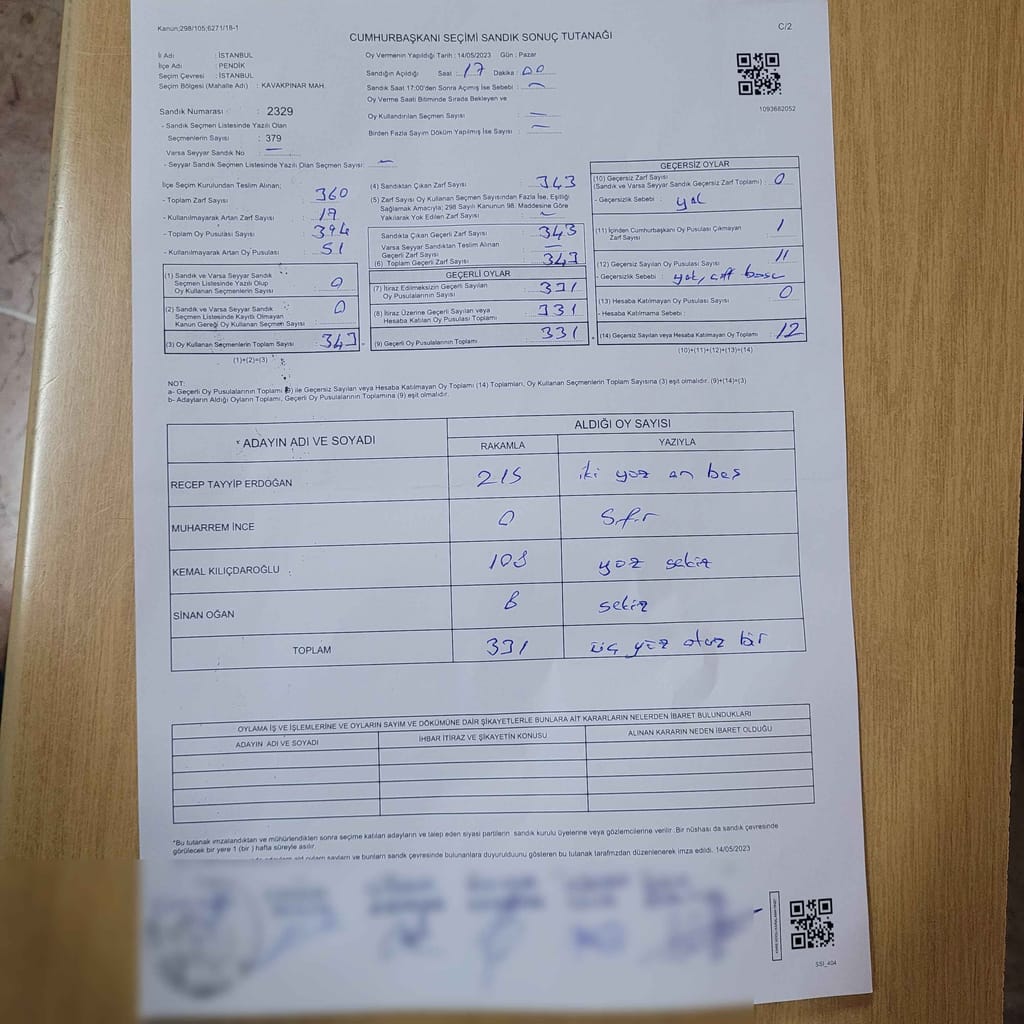 Kanun;298/105;6271/18-1
C/2
CUMHURBAŞKANI SEÇİMİ SANDIK SONUÇ TUTANAĞI
İl Adı : İSTANBUL
İlçe Adı : PENDİK
Seçim Çevresi : İSTANBUL
Seçim Bölgesi (Mahalle Adı) : KAVAKPINAR MAH.
Oy Vermenin Yapıldığı Tarih : 14/05/2023 Gün : Pazar
Sandığın Açıldığı Saat : 17 Dakika : 00
Sandık Saat 17:00'den Sonra Açımış İse Sebebi :
Oy Verme Saati Bitiminde Sırada Bekleyen ve
Oy Kullandırılan Seçmen Sayısı
Birden Fazla Sayım Döküm Yapılmış İse Sayısı :
1093682052
Sandık Numarası : 2329
- Sandık Seçmen Listesinde Yazılı Olan
Seçmenlerin Sayısı : 379
- Varsa Seyyar Sandık No
- Seyyar Sandık Seçmen Listesinde Yazılı Olan Seçmen Sayısı:
İlçe Seçim Kurulundan Teslim Alınan;
- Toplam Zarf Sayısı : 360
- Kullanılmayarak Artan Zarf Sayısı : 17
- Toplam Oy Pusulası Sayısı : 394
- Kullanılmayarak Artan Oy Pusulası : 51
(1) Sandık ve Varsa Seyyar Sandık
Seçmen Listesinde Yazılı Olup
Oy Kullanan Seçmenlerin Sayısı : 0
(2) Sandık ve Varsa Seyyar Sandık
Seçmen Listesinde Kayıtlı Olmayan
Kanun Gereği Oy Kullanan Seçmen Sayısı : 0
(3) Oy Kullanan Seçmenlerin Toplam Sayısı : 343
(1)+(2)=(3)
(4) Sandıktan Çıkan Zarf Sayısı : 343
(5) Zarf Sayısı Oy Kullanan Seçmen Sayısından Fazla İse, Eşitliği
Sağlamak Amacıyla; 298 Sayılı Kanunun 98. Maddesine Göre
Yakılarak Yok Edilen Zarf Sayısı :
Sandıkta Çıkan Geçerli Zarf Sayısı : 343
Varsa Seyyar Sandıktan Teslim Alınan
Geçerli Zarf Sayısı :
(6) Toplam Geçerli Zarf Sayısı : 343
GEÇERLİ OYLAR
(7) İtiraz Edilmeksizin Geçerli Sayılan
Oy Pusulalarının Sayısı : 331
(8) İtiraz Üzerine Geçerli Sayılan veya
Hesaba Katılan Oy Pusulası Toplamı : 331
(9) Geçerli Oy Pusulalarının Toplamı : 331
GEÇERSİZ OYLAR
(10) Geçersiz Zarf Sayısı
(Sandık ve Varsa Seyyar Sandık Geçersiz Zarf Toplamı) : 0
- Geçersizlik Sebebi : yok
(11) İçinden Cumhurbaşkanı Oy Pusulası Çıkmayan
Zarf Sayısı 1
(12) Geçersiz Sayılan Oy Pusulası Sayısı : 11
- Geçersizlik Sebebi : yok, çift bası
(13) Hesaba Katılmayan Oy Pusulası Sayısı : 0
- Hesaba Katılmama Sebebi :
(14) Geçersiz Sayılan veya Hesaba Katılmayan Oy Toplamı : 12
(10)+(11)+(12)+(13)=(14)
NOT:
a- Geçerli Oy Pusulalarının Toplamı (9) ile Geçersiz Sayılan veya Hesaba Katılmayan Oy Toplamı (14) Toplamları, Oy Kullanan Seçmenlerin Toplam Sayısına (3) eşit olmalıdır. (9)+(14)=(3)
b- Adayların Aldığı Oyların Toplamı, Geçerli Oy Pusulalarının Toplamına (9) eşit olmalıdır.
* ADAYIN ADI VE SOYADI
ALDIĞI OY SAYISI
RAKAMLA YAZIYLA
RECEP TAYYİP ERDOĞAN 215 iki yüz on beş
MUHARREM İNCE 0 Sıfır
KEMAL KILIÇDAROĞLU 108 yüz sekiz
SİNAN OĞAN 8 sekiz
TOPLAM 331 üç yüz otuz bir
OYLAMA İŞ VE İŞLEMLERİNE VE OYLARIN SAYIM VE DÖKÜMÜNE DAİR ŞİKAYETLERLE BUNLARA AİT KARARLARIN NELERDEN İBARET BULUNDUKLARI
ADAYIN ADI VE SOYADI İHBAR İTİRAZ VE ŞİKAYETİN KONUSU ALINAN KARARIN NEDEN İBARET OLDUĞU
*Bu tutanak imzalandıktan ve mühürlendikten sonra seçime katılan adayların ve talep eden siyasi partilerin sandık kurulu üyelerine veya gözlemcilerine verilir. Bir nüshası da sandık çevresinde
görülecek bir yere 1 (bir ) hafta süreyle asılır.
bu tutanak tarafımızdan düzenlenerek imza edildi. 14/05/2023
SSİ_404